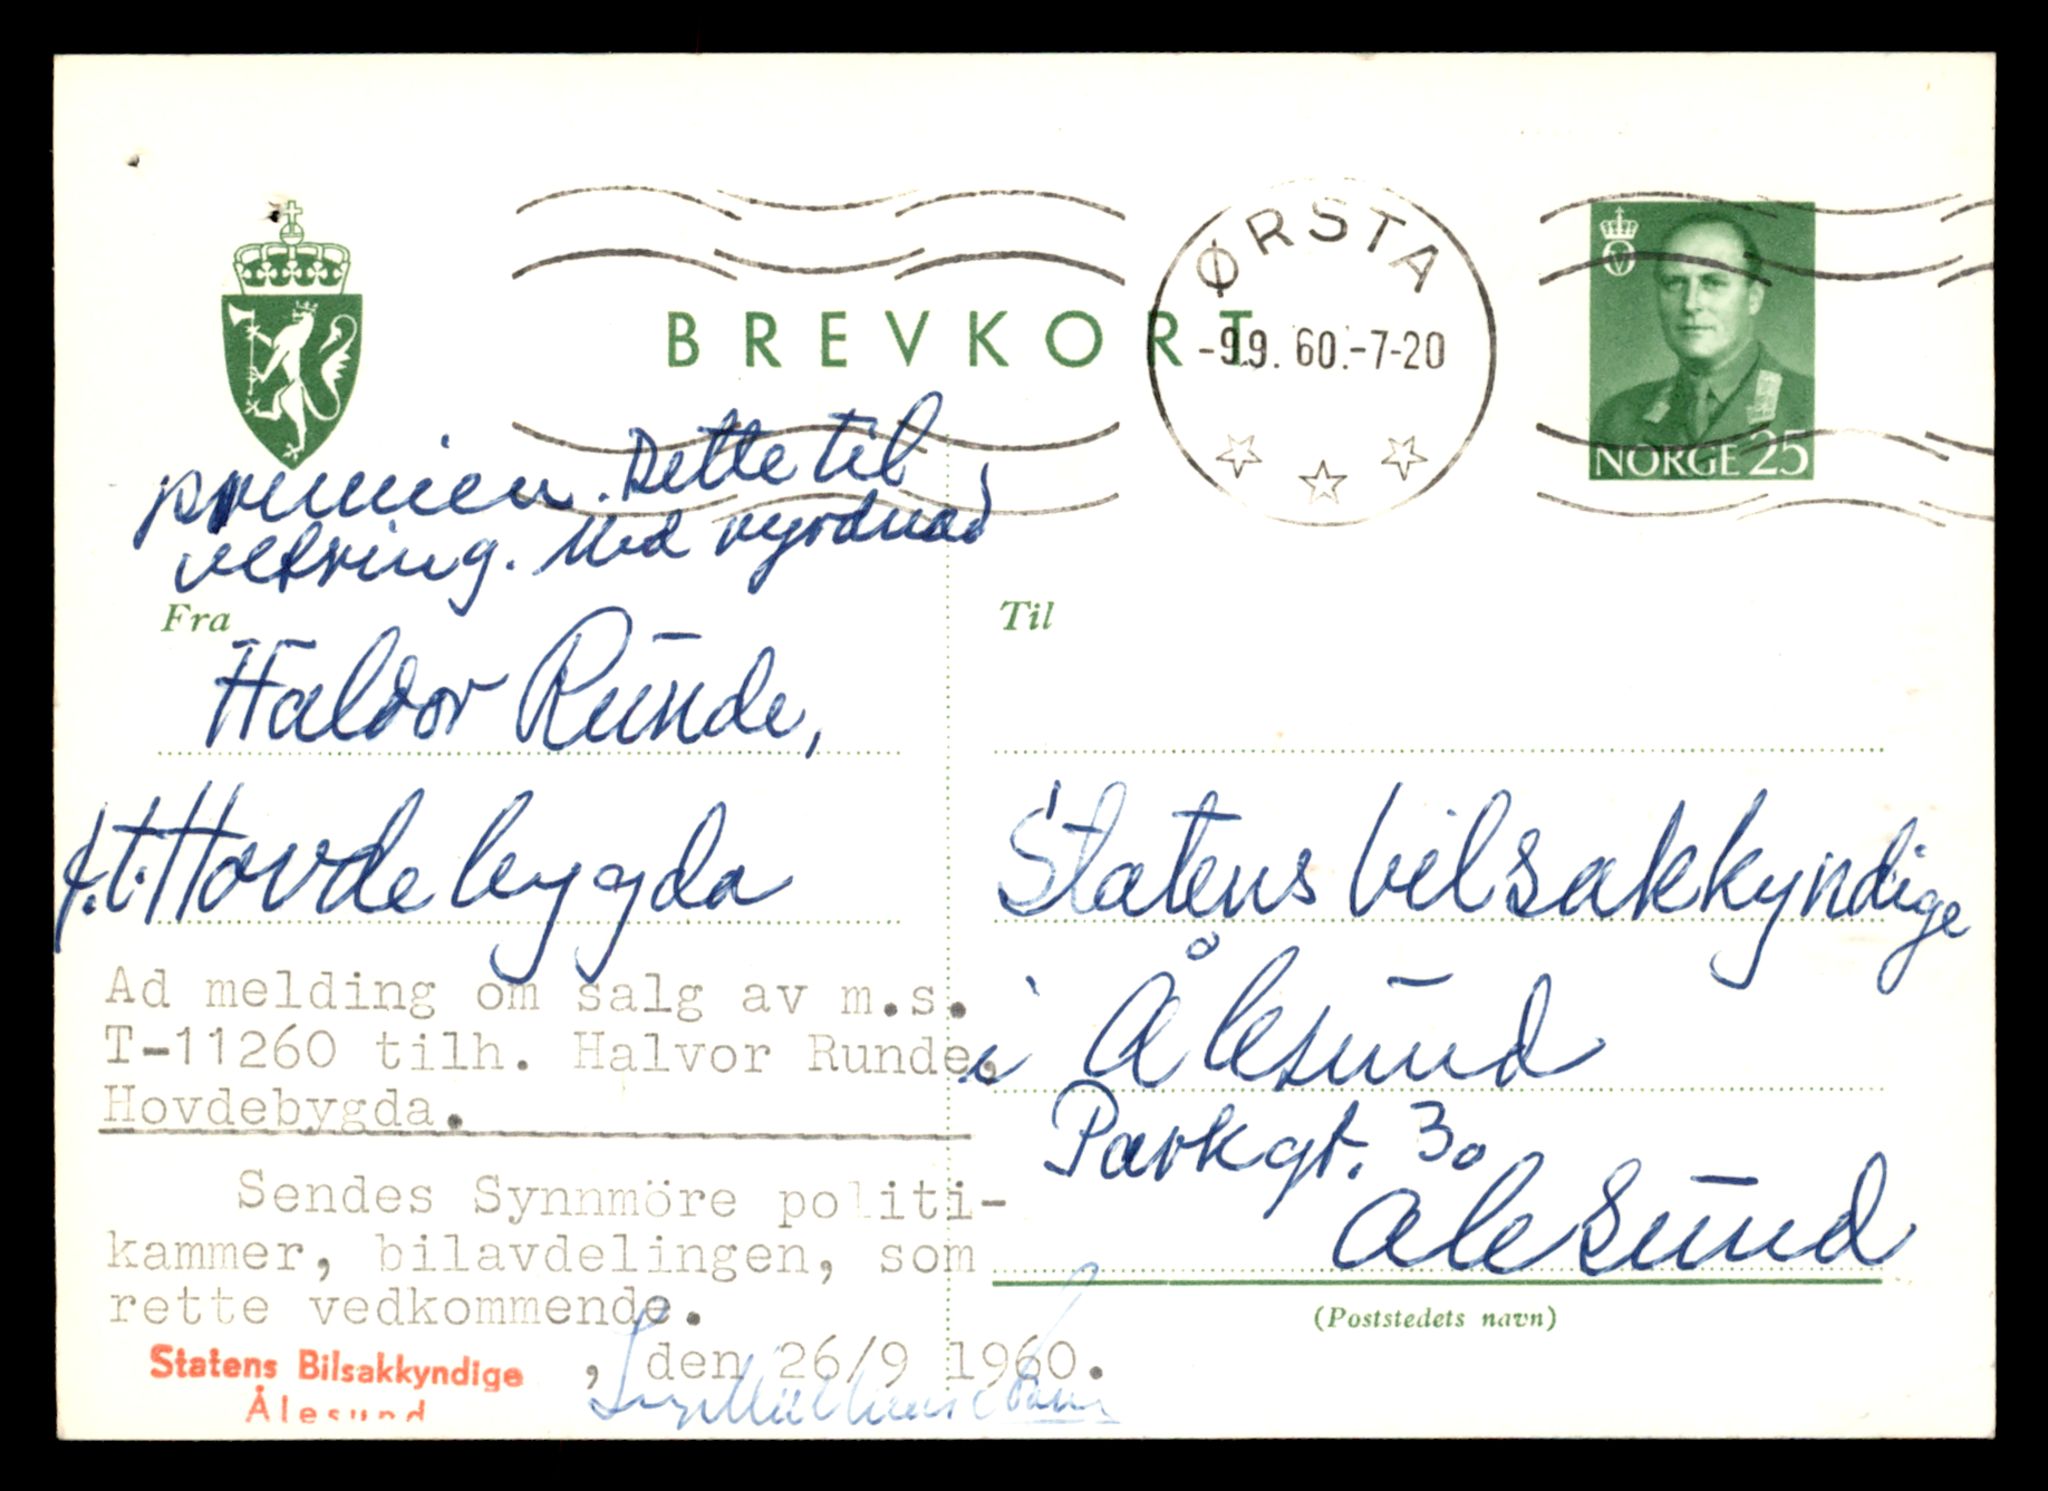 BREVKORT
ØRSTA
-9.9.60.-7-20
NORGE 25
premien. Dette til
vetring. Med vyrdnad
Fra
Haldor Runde,
f.t. Hovdebygda
Til
Statens bilsakkyndige
i Ålesund
Parkgt. 3.
Ålesund
(Poststedets navn)
Ad melding om salg av m.s.
T-11260 tilh. Halvor Runde,
Hovdebygda.
Sendes Synnmöre politi-
kammer, bilavdelingen, som
rette vedkommende.
, den 26/9 1960.
Statens Bilsakkyndige
Ålesund